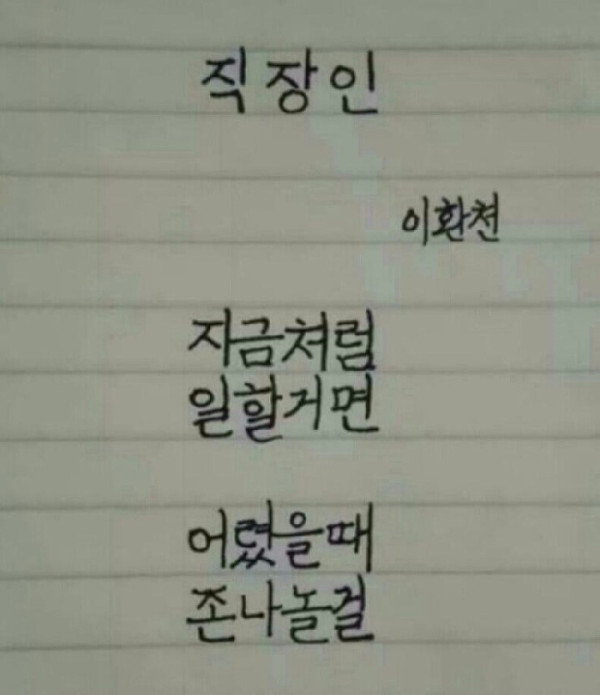 직장인
이환천
지금쳐럼
일할거면
어렸을때
존나놀걸